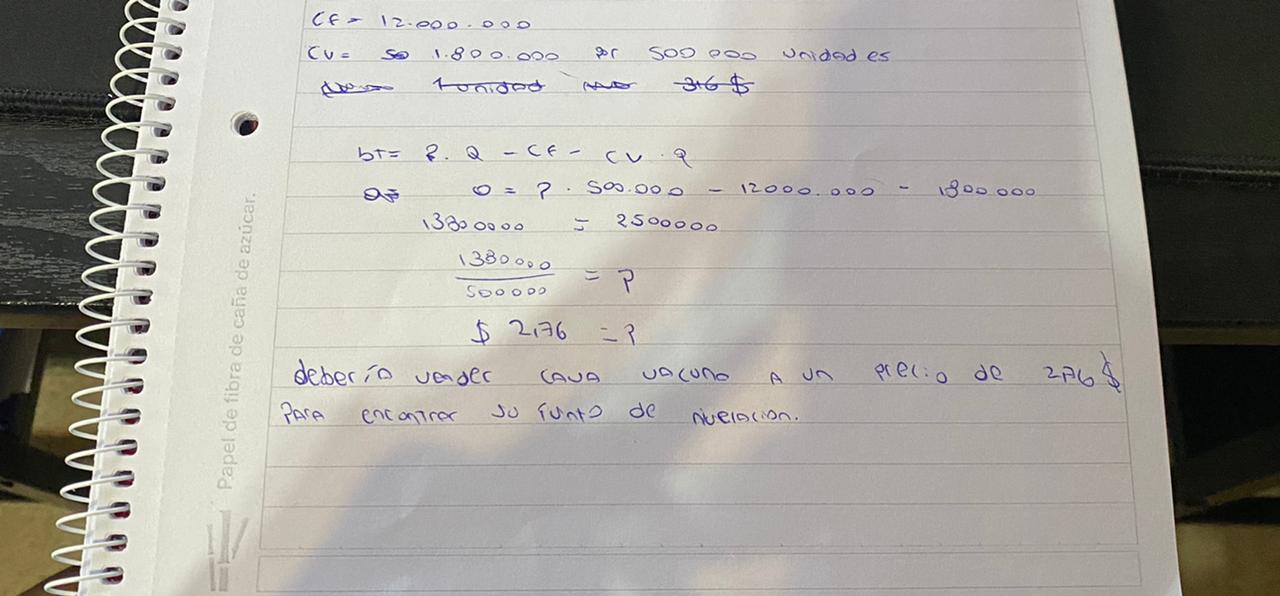 CF = 12.000.000
CV = 1.800.000 por 500 000 unidades
1 unidad 3,6 $
bT = P. Q - CF - CV . Q
0 = P . 500.000 - 12000.000 - 1800000
13800000 = 2500000
1380000
500000
= P
$ 2,76 = P
debería vender cada vacuno A un precio de 2,76 $
PARA encontrar su punto de nivelacion.
Papel de fibra de caña de azúcar.